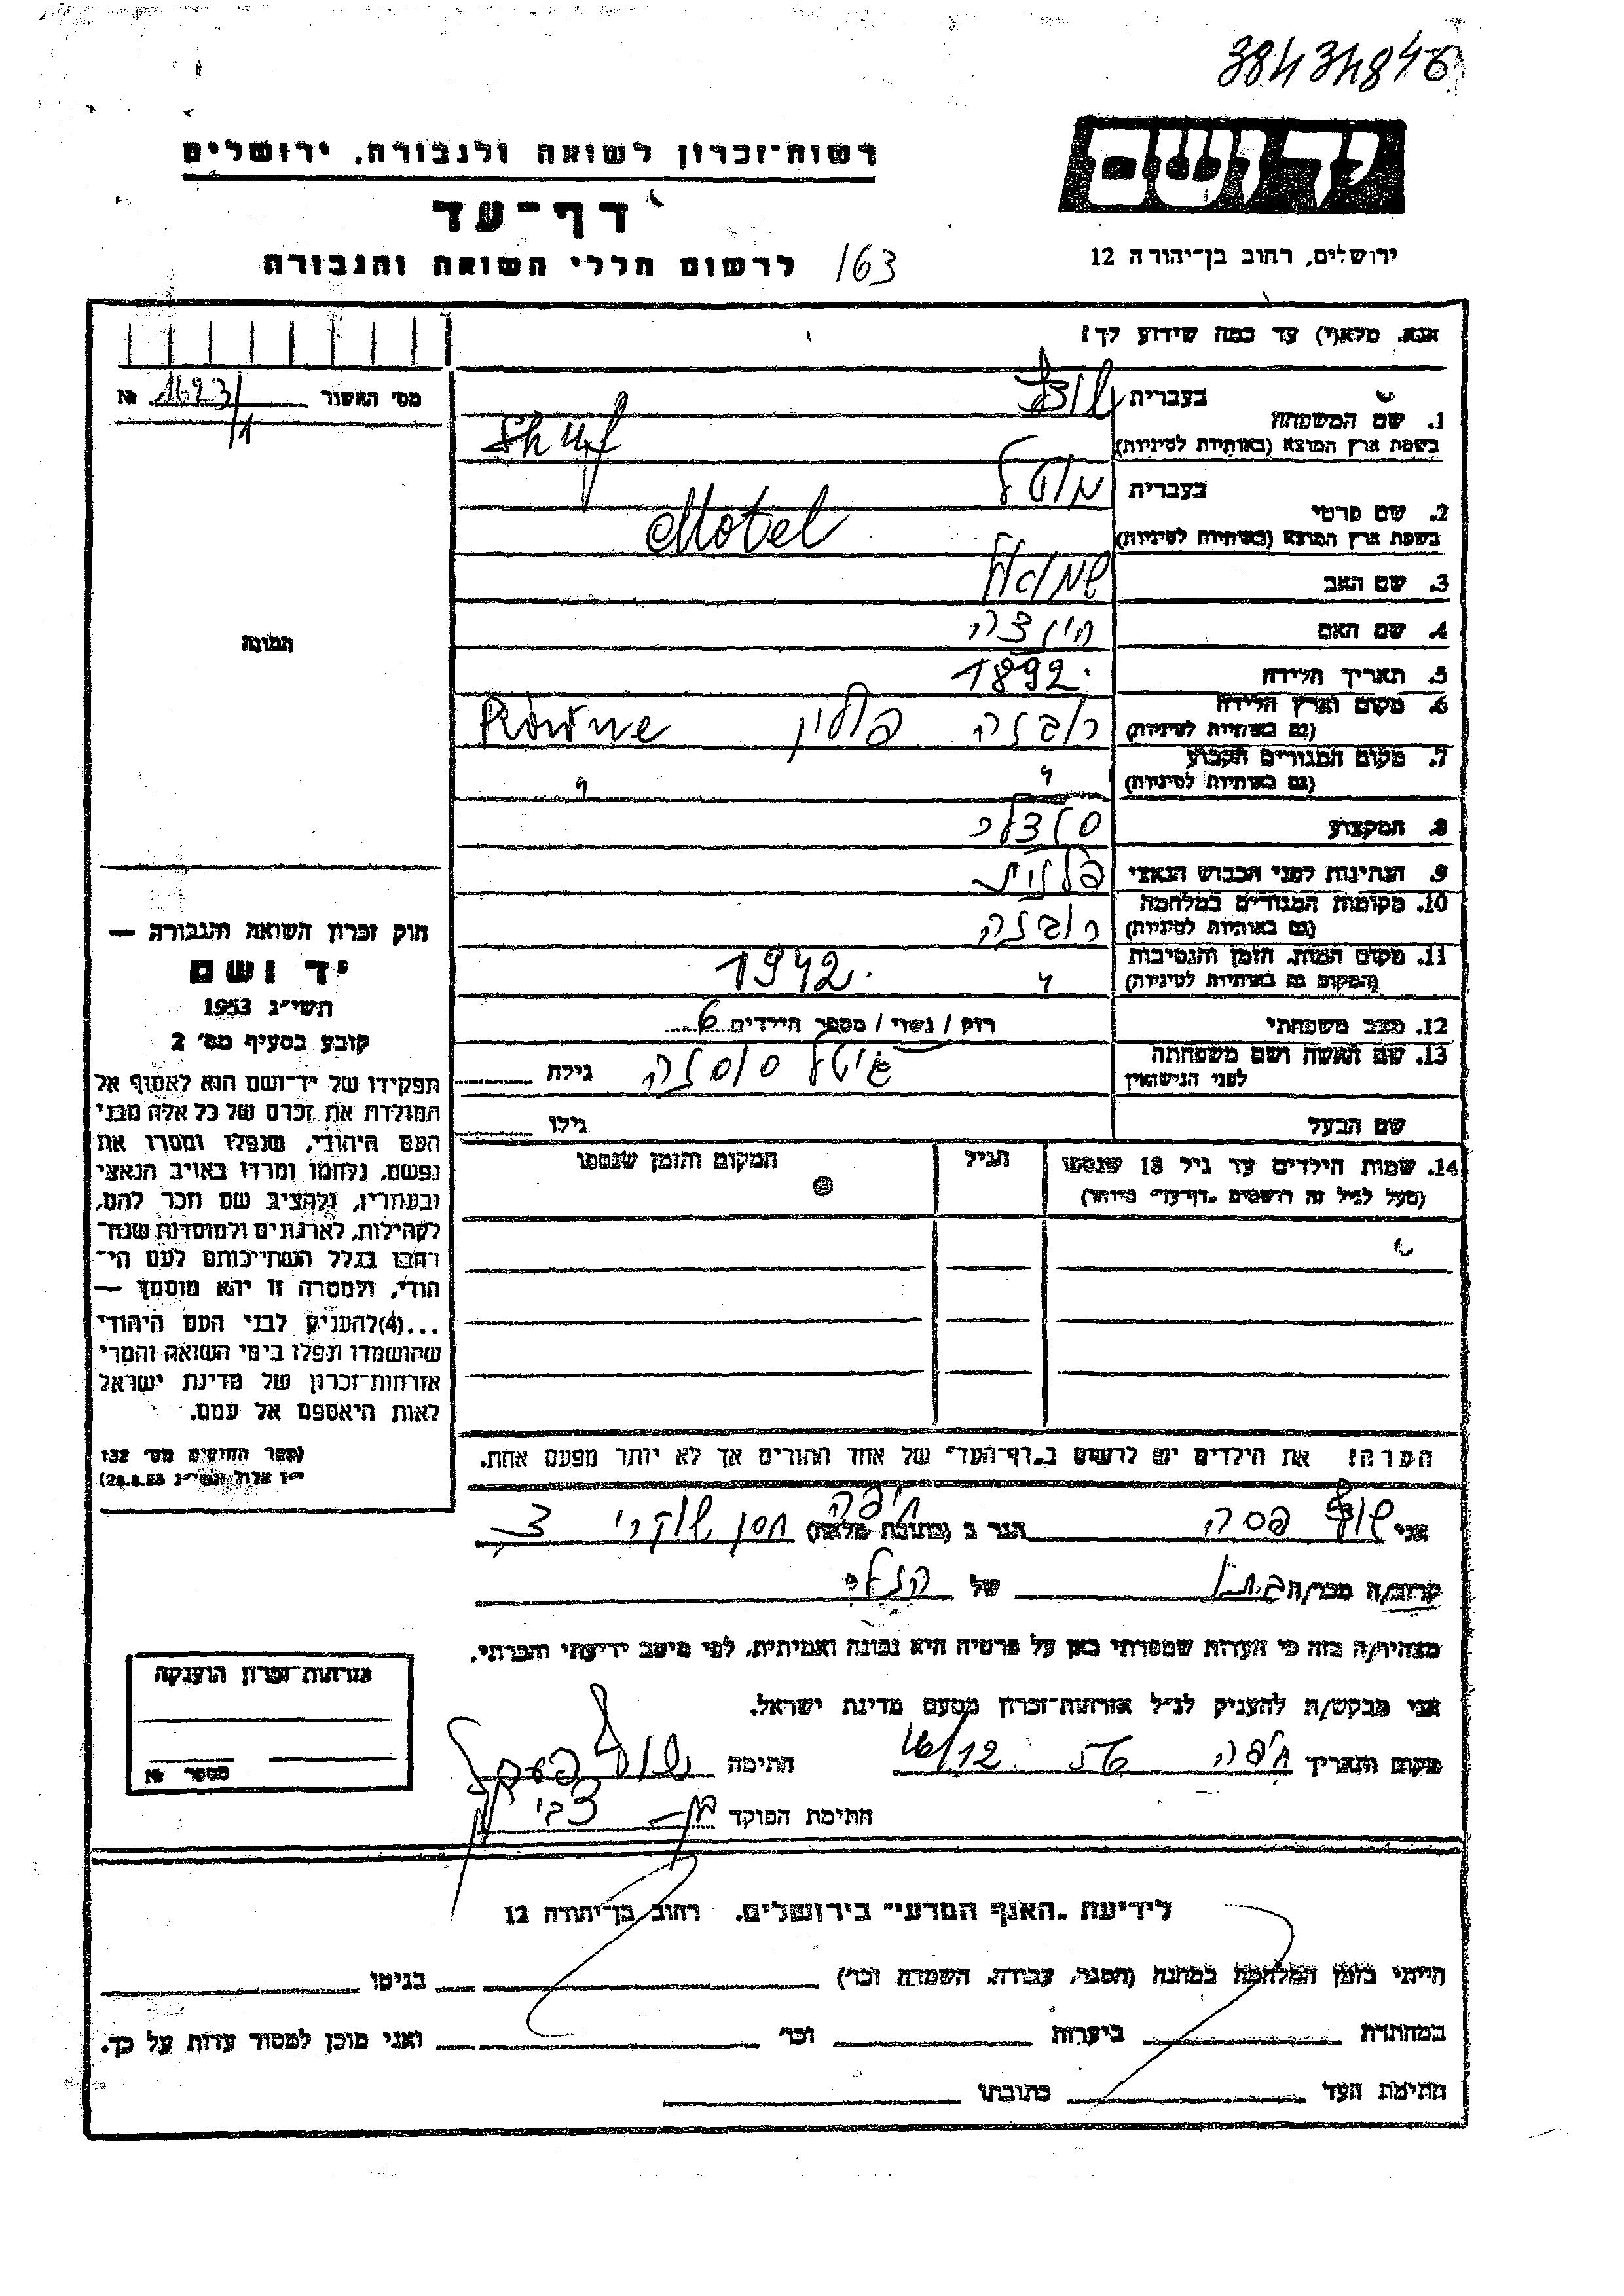 38434846
יד ושם
רשות-זכרון לשואה ולגבורה, ירושלים
דף-עד
ירושלים, רחוב בן-יהודה 12
לרשום חללי השואה והגבורה 163
אנא, מלא(י) עד כמה שידוע לך!
מס׳ האשור 1623/1 №
1. שם המשפחה בעברית שוף
בשפת ארץ המוצא (באותיות לטיניות) Shuf
2. שם פרטי בעברית מוטל
בשפת ארץ המוצא (באותיות לטיניות) Motel
3. שם האב שמואל
4. שם האם הינצה
5. תאריך הלידה 1892.
6. מקום וארץ הלידה רובנה פולין Równe
(גם באותיות לטיניות)
7. מקום המגורים הקבוע " "
(גם באותיות לטיניות)
8. המקצוע סנדלר
9. הנתינות לפני הכבוש הנאצי פלנית
10. מקומות המגורים במלחמה רובנה
(גם באותיות לטיניות)
11. מקום המות, הזמן והנסיבות " 1942.
(המקום גם באותיות לטיניות)
12. מצב משפחתי רוק / נשוי / מספר הילדים 6
13. שם האשה ושם משפחתה גילה
לפני הנישואין
שם הבעל גילו
14. שמות הילדים עד גיל 18 שנספו הגיל המקום והזמן שנספו
(מעל לגיל זה רושמים "דף-עד" מיוחד)
תמונה
חוק זכרון השואה והגבורה —
יד ושם
תשי״ג 1953
קובע בסעיף מס׳ 2
תפקידו של יד-ושם הוא לאסוף אל
המולדת את זכרם של כל אלה מבני
העם היהודי, שנפלו ומסרו את
נפשם, נלחמו ומרדו באויב הנאצי
ובעוזריו, ולהציב שם וזכר להם,
לקהילות, לארגונים ולמוסדות שנח-
רבו בגלל השתייכותם לעם הי-
הודי, ולמטרה זו יהא מוסמך —
...(4) להעניק לבני העם היהודי
שהושמדו ונפלו בימי השואה והמרי
אזרחות-זכרון של מדינת ישראל
לאות היאספם אל עמם.
(ספר החוקים מס׳ 132
י״ז אלול תשי״ג 28.8.53)
הערה! את הילדים יש לרשום ב"דף-העד" של אחד ההורים אך לא יותר מפעם אחת.
אני שוף פסה הגר ב (כתובת מלאה) חיפה חסן שוקרי
קרוב/ה מכר/ה של הנ״ל
מצהיר/ה בזה כי העדות שמסרתי כאן על פרטיה היא נכונה ואמיתית, לפי מיטב ידיעתי והכרתי.
אני מבקש/ת להעניק לנ״ל אזרחות-זכרון מטעם מדינת ישראל.
מקום ותאריך חיפה 12 חתימה שוף
חתימת הפוקד
אזרחות-זכרון הוענקה
מספר №
לידיעת "האגף המדעי" בירושלים, רחוב בן-יהודה 12
הייתי בזמן המלחמה במחנה (הסגר, עבודה, השמדה וכו׳) בגיטו
במחתרת ביערות וכו׳ ואני מוכן למסור עדות על כך.
חתימת העד כתובתו